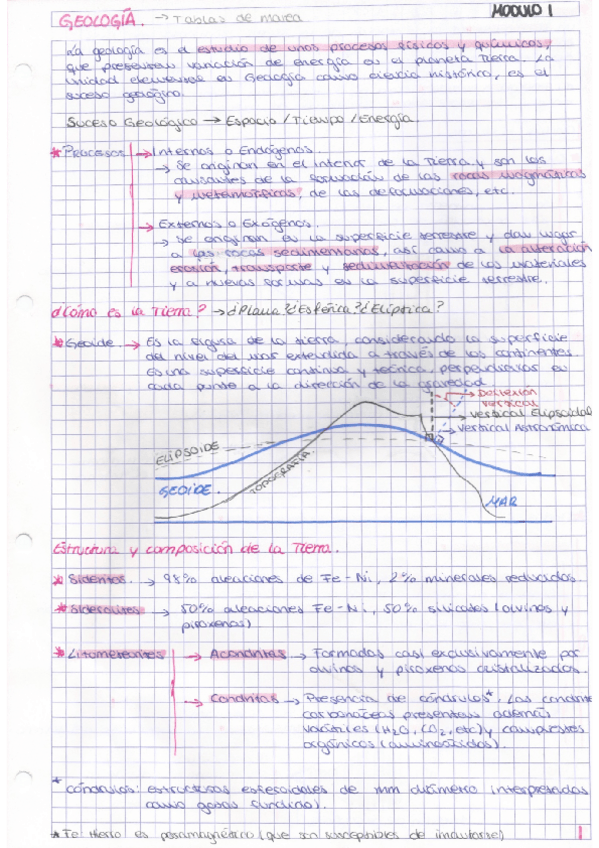 GEOLOGÍA. → Tablas de marea MODULO 1
La geología es el estudio de unos procesos físicos y químicos,
que presentan variación de energía en el planeta Tierra. La
unidad elemental en Geología como ciencia histórica, es el
suceso geológico.
Suceso Geológico → Espacio / Tiempo / Energía.
* Procesos → Internos o Endógenos.
→ Se originan en el interior de la Tierra y son los
causantes de la formación de las rocas magmáticas
y metamórficas, de las deformaciones, etc.
→ Externos o Exógenos.
→ Se originan en la superficie terrestre y dan lugar
a las rocas sedimentarias, así como a la alteración
erosión, transporte y sedimentación de los materiales
y a nuevas formas en la superficie terrestre.
¿Cómo es la Tierra? → ¿Plana? ¿Esférica? ¿Elíptica?
* Geoide → Es la figura de la tierra, considerando la superficie
del nivel del mar extendida a través de los continentes.
Es una superficie continua y teórica, perpendicular en
cada punto a la dirección de la gravedad
→ Desviación
vertical
→ Vertical Elipsoidal
→ Vertical Astronómica
ELIPSOIDE
GEOIDE.
TOPOGRAFÍA.
MAR
Estructura y composición de la Tierra.
* Sideritos. → 98% aleaciones de Fe-Ni, 2% minerales reducidos.
* Siderolitos → 50% aleaciones Fe-Ni, 50% silicatos (olivinos y
piroxenos)
* Litometeoritos → Acondritas → Formadas casi exclusivamente por
olivinos y piroxenos cristalizados.
→ Condritas → Presencia de cóndrulos*. Las condritas
carbonáceas presentan además
volátiles (H2O, CO2, etc) y compuestos
orgánicos (aminoácidos).
* Cóndrulos: estructuras esferoidales de mm diámetro interpretados
como gotas fundido).
* Fe: Hierro es paramagnético (que son susceptibles de imantarse)
1